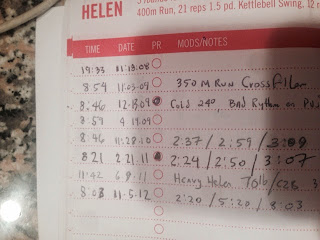 HELEN
400m Run, 21 reps 1.5 pd. Kettlebell Swing, 12 r
TIME DATE PR MODS/NOTES
8:54 11-03-09 350 M RUN
8:46 Cold 24°, BAD Rythm on
8:59
8:46 11-28-10 2:37 / 2:59 / 3:09
8:21 2.21.11 2:24 / 2:50 / 3:07
11:42 6.9.11 Heavy Helen
8:03 11-5-12 2:20 / 5:20 / 8:03